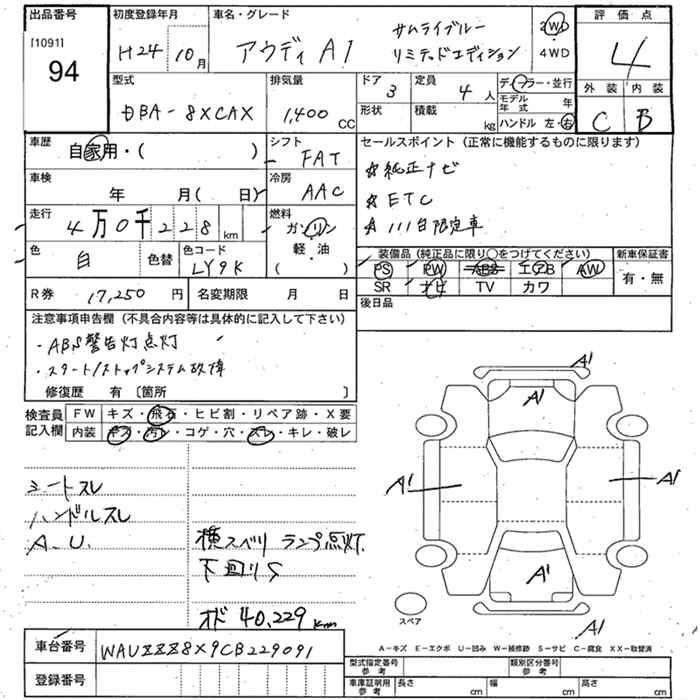 出品番号 初度登録年月 車名・グレード 評価点
[1091] サムライブルー 2WD
94 H24 10月 アウディ A1 リミテッドエディション 4WD 4
型式 排気量 ドア 3 定員 4人 ディーラー・並行 外装 内装
DBA-8XCAX 1,400 CC 形状 積載 kg モデル年式 年 C B
ハンドル 左・右
車歴 シフト セールスポイント(正常に機能するものに限ります)
自家用・( ) FAT ☆純正ナビ
車検 冷房 ☆ETC
年 月( 日) AAC ☆111台限定車
走行 燃料
4万0千228km ガソリン
色 白 色替 色コード LY9K 軽・油 ( )
装備品(純正品に限り○をつけてください) 新車保証書
PS PW ABS エアB AW 有・無
SR ナビ TV カワ
R券 17,250円 名変期限 月 日 後日品
注意事項申告欄(不具合内容等は具体的に記入して下さい)
・ABS警告灯点灯
・スタート/ストップシステム故障
修復歴 有〔箇所 〕
検査員記入欄 FW キズ・飛石・ヒビ割・リペア跡・X要
内装 キズ・汚レ・コゲ・穴・スレ・キレ・破レ
A1
A1
A1 A1
シートスレ
ハンドルスレ
A.U. 横スベリランプ点灯
下回りS A1
オド 40,229km スペア A1
A-キズ E-エクボ U-凹み W-補修跡 S-サビ C-腐食 XX-取替済
車台番号 WAUZZZ8X9CB229091
登録番号
型式指定番号 参考 類別区分番号 参考
車庫証明用 参考 長さ cm 幅 cm 高さ cm